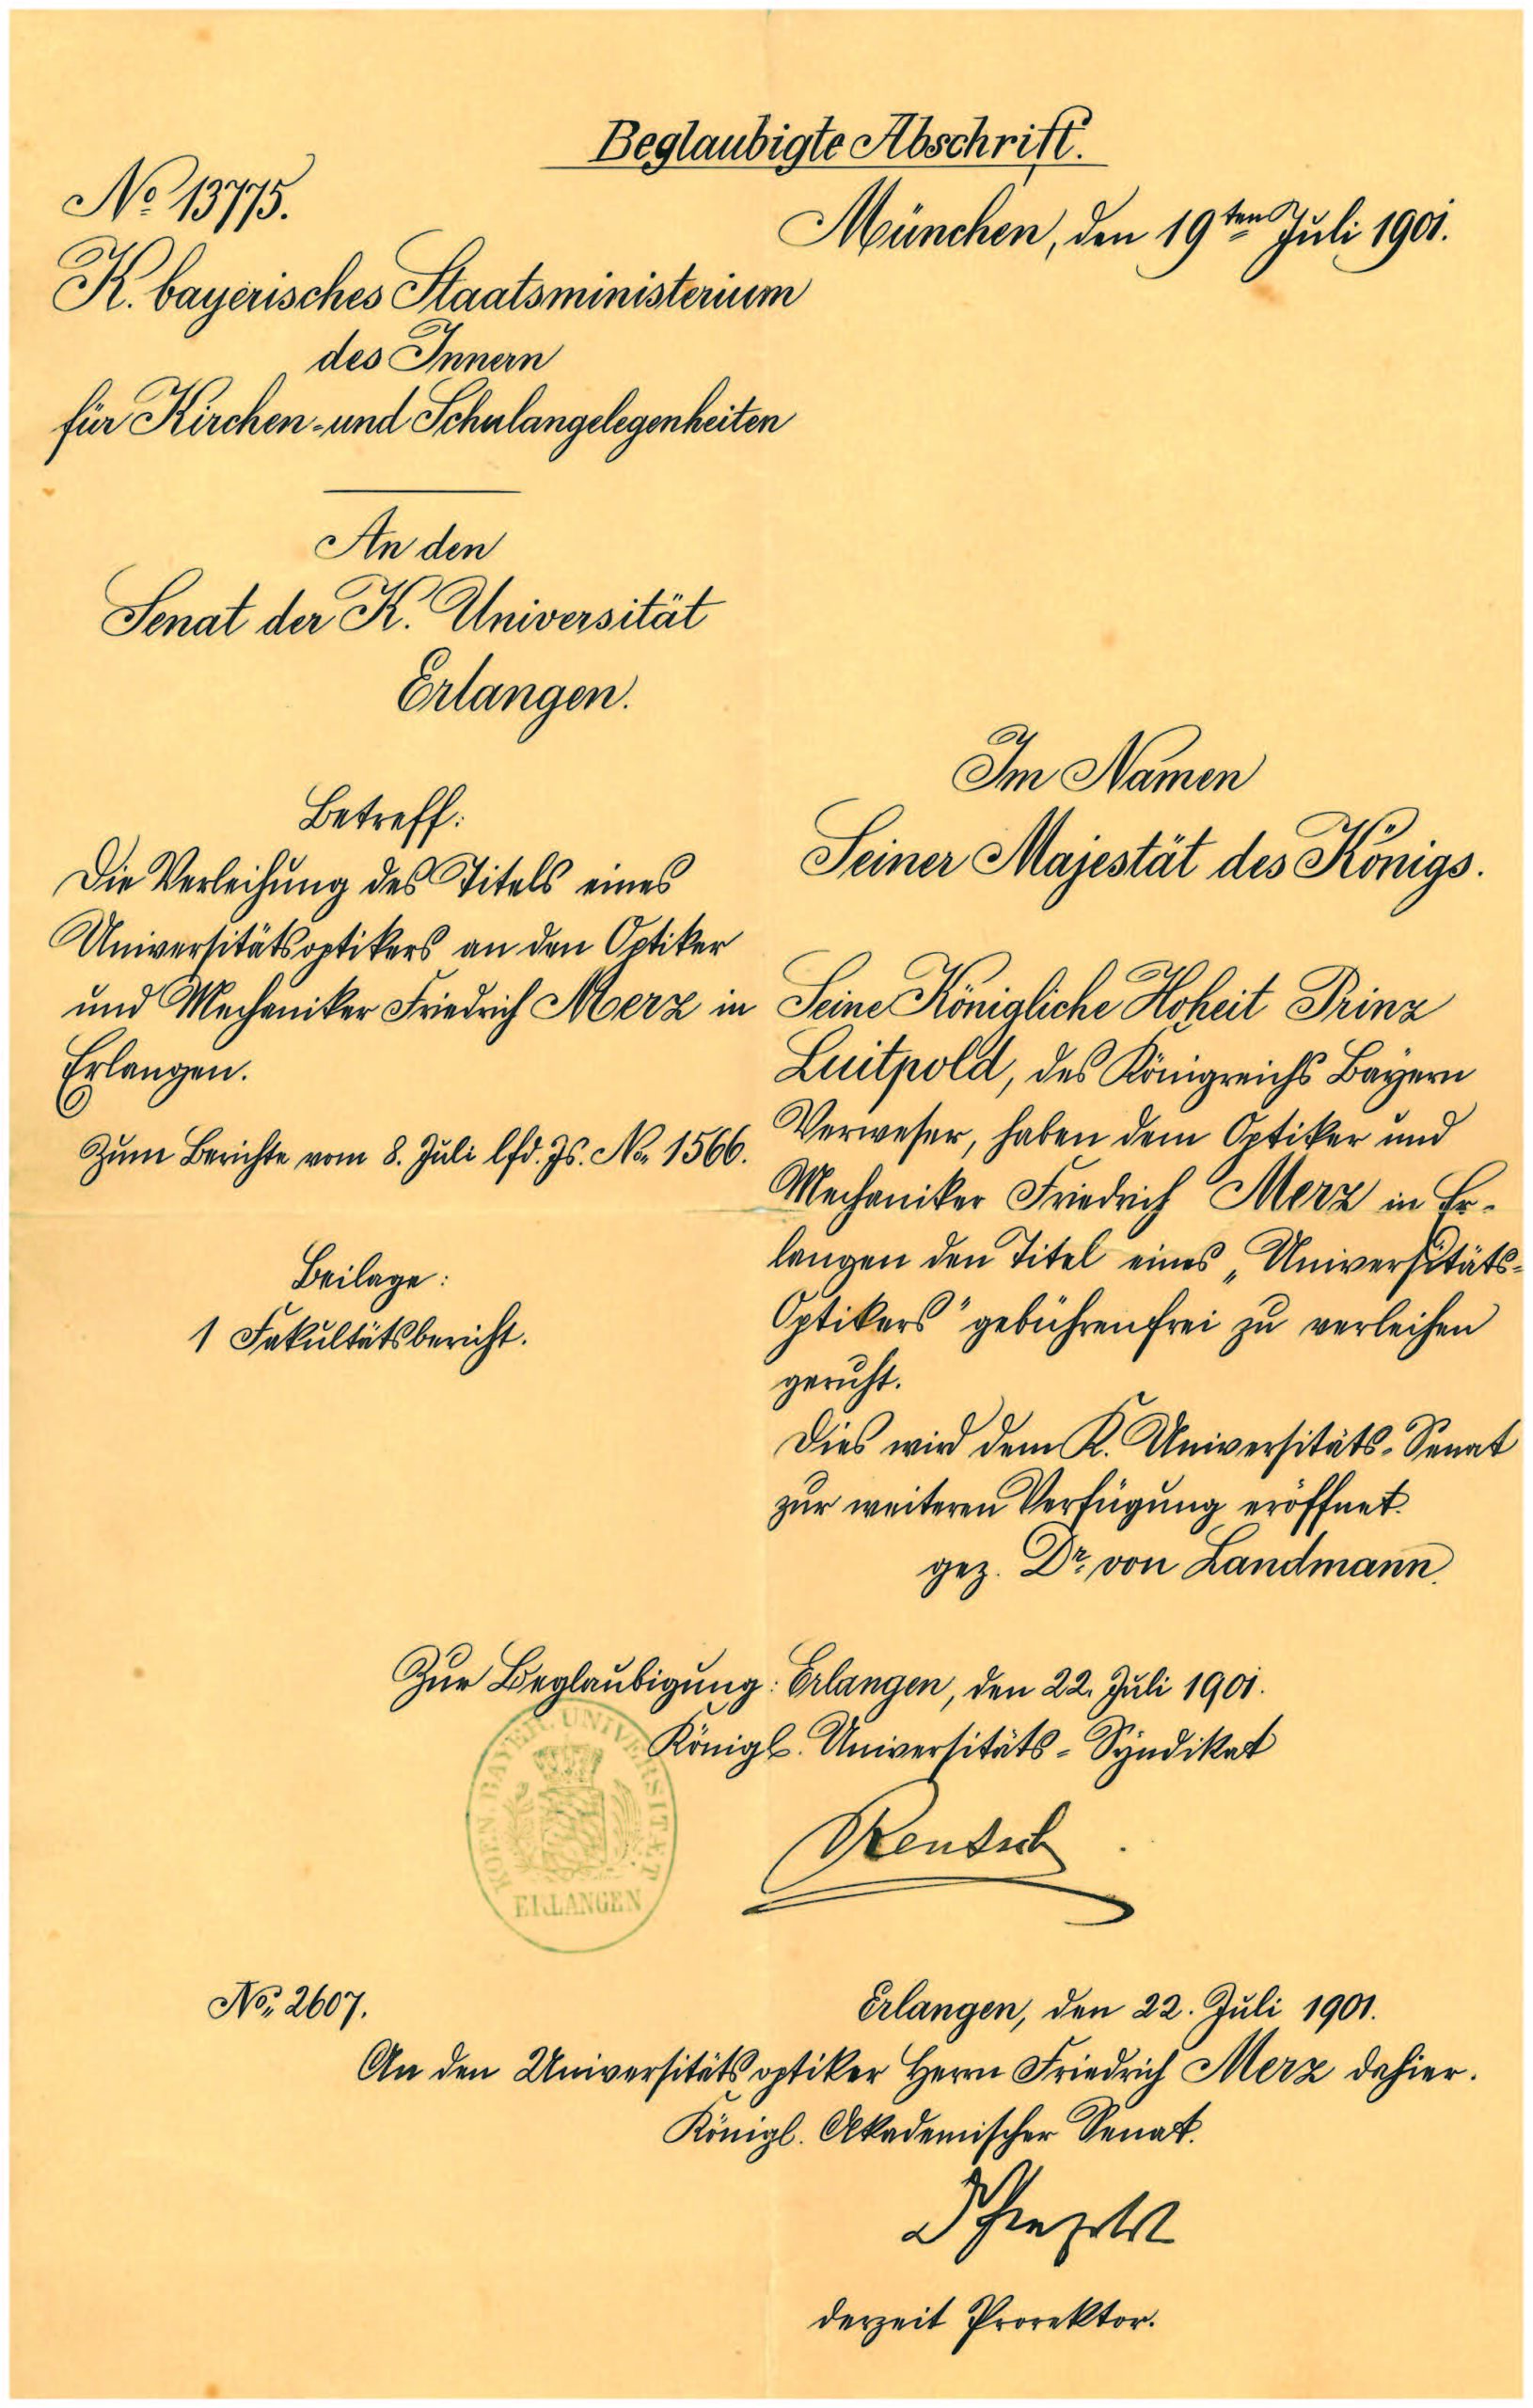 Beglaubigte Abschrift.
No 13775.
München, den 19ten Juli 1901.
K. bayerisches Staatsministerium
des Innern
für Kirchen- und Schulangelegenheiten
An den
Senat der K. Universität
Erlangen.
Betreff:
Die Verleihung des Titels eines
Universitätsoptikers an den Optiker
und Mechaniker Friedrich Merz in
Erlangen.
Zum Berichte vom 8. Juli lfd. Js. No. 1566.
Beilage:
1 Fakultätsbericht.
Im Namen
Seiner Majestät des Königs.
Seine Königliche Hoheit Prinz
Luitpold, des Königreichs Bayern
Verweser, haben dem Optiker und
Mechaniker Friedrich Merz in Er-
langen den Titel eines „Universitäts-
Optikers" gebührenfrei zu verleihen
geruht.
Dies wird dem K. Universitäts-Senat
zur weiteren Verfügung eröffnet.
gez. Dr. von Landmann.
Zur Beglaubigung: Erlangen, den 22. Juli 1901.
Königl. Universitäts-Syndikat
KOEN. BAYER. UNIVERSITÄT
ERLANGEN
Rentsch
No. 2607.
Erlangen, den 22. Juli 1901.
An den Universitätsoptiker Herrn Friedrich Merz dahier.
Königl. Akademischer Senat.
derzeit Prorektor.